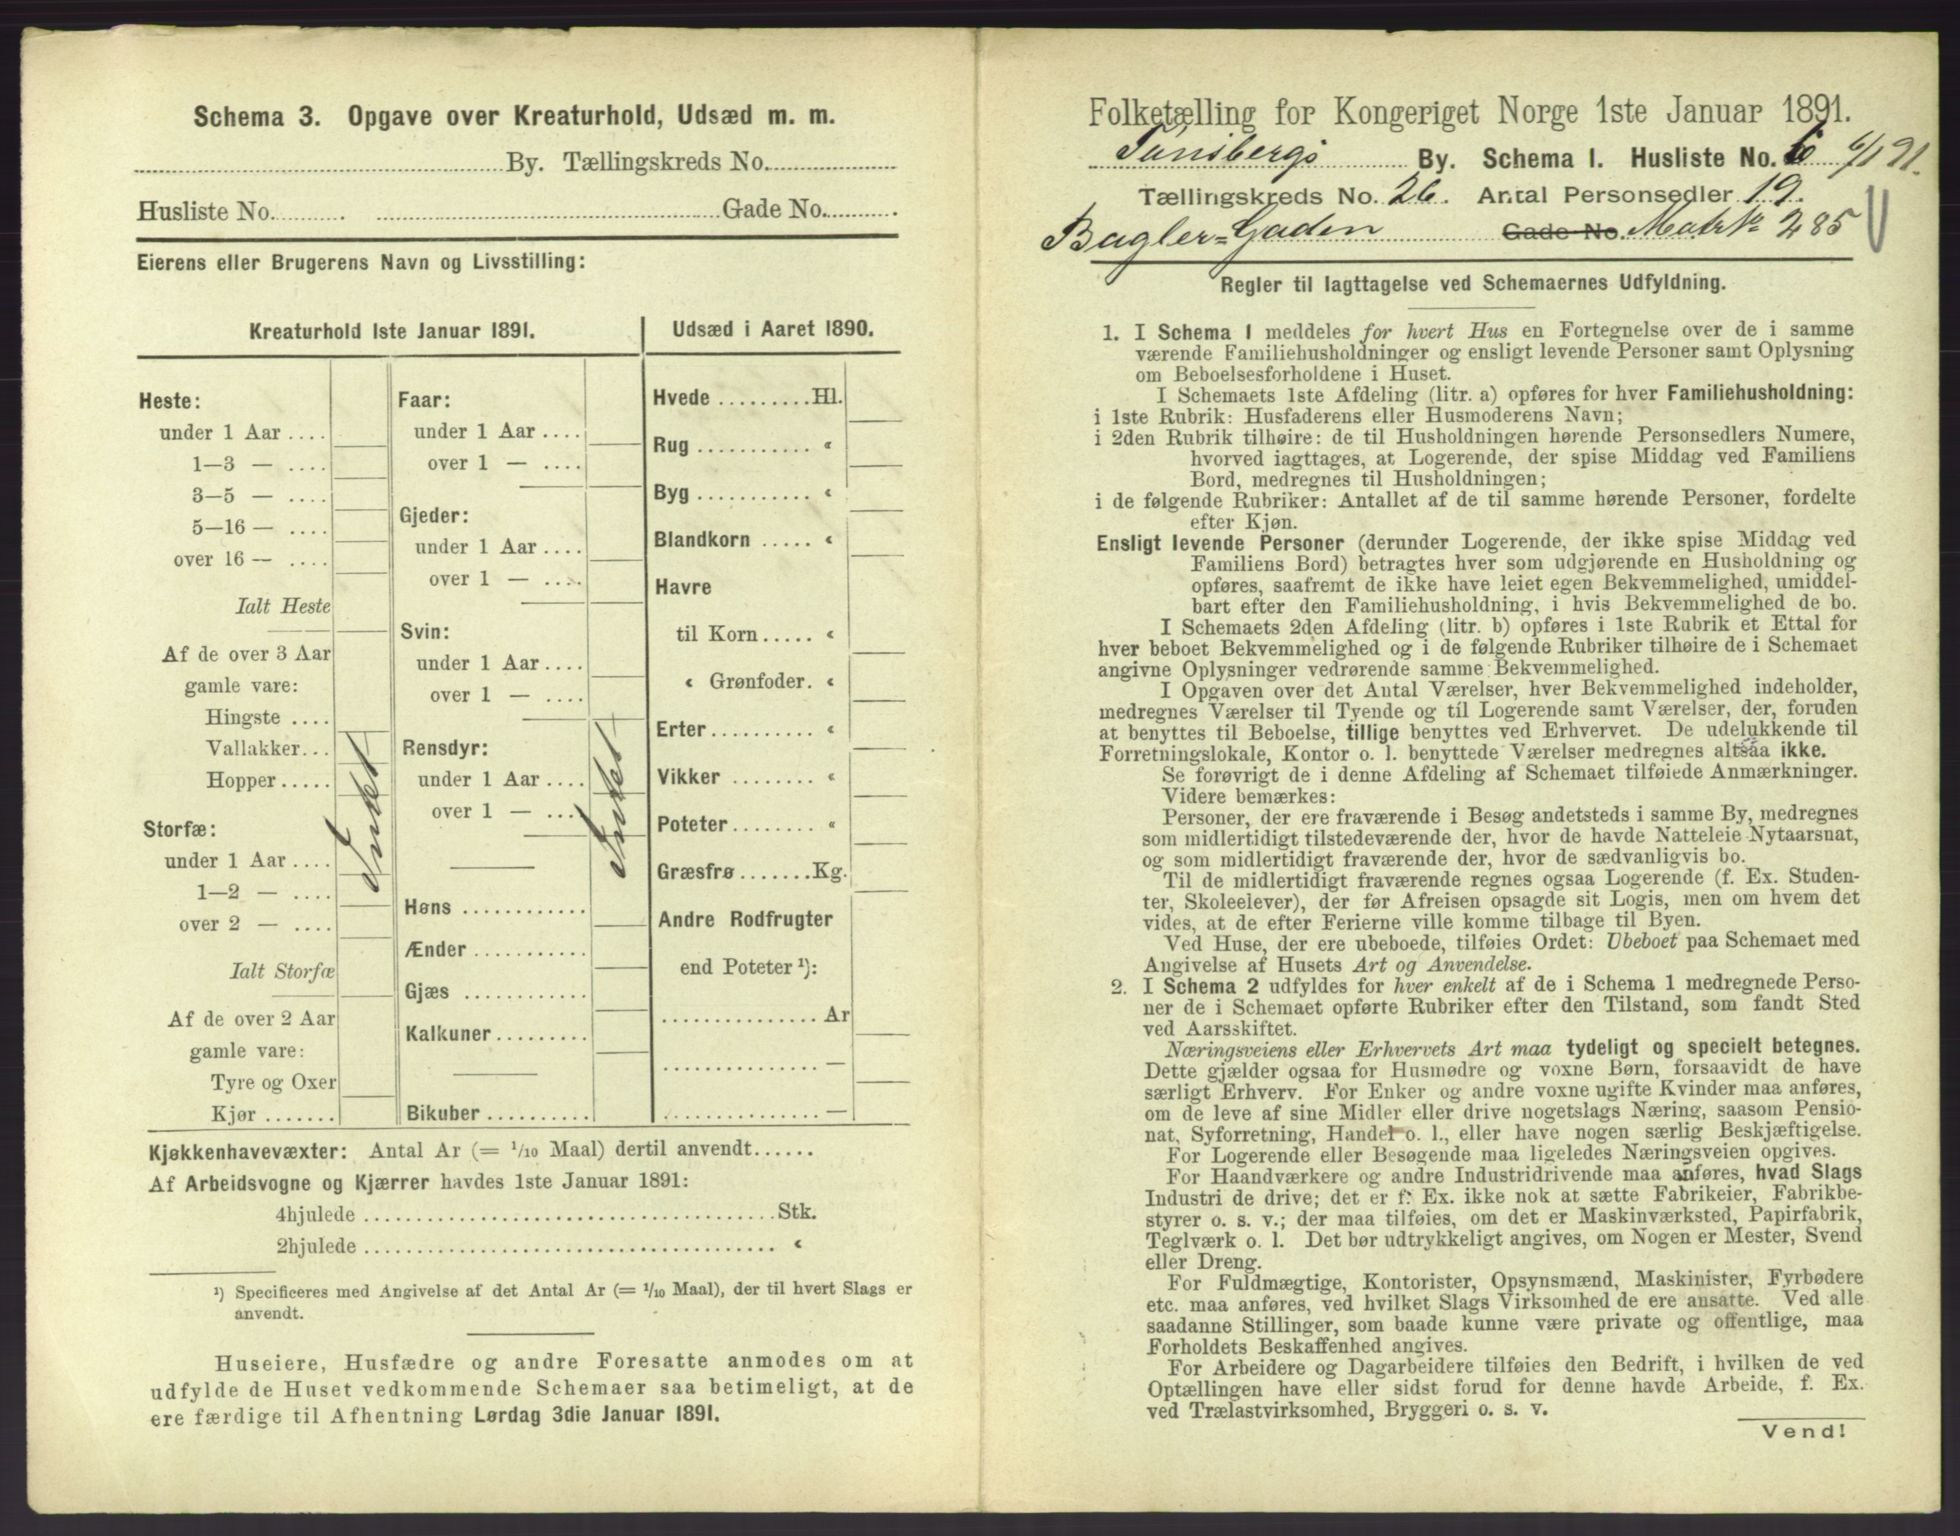 Schema 3. Opgave over Kreaturhold, Udsæd m. m.
By. Tællingskreds No.
Husliste No. Gade No.
Eierens eller Brugerens Navn og Livsstilling:
Kreaturhold 1ste Januar 1891.
Heste:
under 1 Aar
1—3 —
3—5 —
5—16 —
over 16 —
Ialt Heste
Af de over 3 Aar
gamle vare:
Hingste
Vallakker
Hopper
Storfæ:
under 1 Aar
1—2 —
over 2 —
Ialt Storfæ
Af de over 2 Aar
gamle vare:
Tyre og Oxer
Kjør
Intet
Faar:
under 1 Aar
over 1 —
Gjeder:
under 1 Aar
over 1 —
Svin:
under 1 Aar
over 1 —
Rensdyr:
under 1 Aar
over 1 —
Høns
Ænder
Gjæs
Kalkuner
Bikuber
Intet
Udsæd i Aaret 1890.
Hvede Hl.
Rug «
Byg «
Blandkorn «
Havre
til Korn «
« Grønfoder. «
Erter «
Vikker «
Poteter «
Græsfrø Kg.
Andre Rodfrugter
end Poteter ¹):
Ar
—
—
Kjøkkenhavevæxter: Antal Ar (= 1/10 Maal) dertil anvendt
Af Arbeidsvogne og Kjærrer havdes 1ste Januar 1891:
4hjulede Stk.
2hjulede «
¹) Specificeres med Angivelse af det Antal Ar (= 1/10 Maal), der til hvert Slags er
anvendt.
Huseiere, Husfædre og andre Foresatte anmodes om at
udfylde de Huset vedkommende Schemaer saa betimeligt, at de
ere færdige til Afhentning Lørdag 3die Januar 1891.
Folketælling for Kongeriget Norge 1ste Januar 1891.
Tønsbergs By. Schema 1. Husliste No. 6 6/1 91.
Tællingskreds No. 26. Antal Personsedler 19.
Bagler=Gaden Gade No. Matr № 285
Regler til Iagttagelse ved Schemaernes Udfyldning.
1. I Schema 1 meddeles for hvert Hus en Fortegnelse over de i samme
værende Familiehusholdninger og ensligt levende Personer samt Oplysning
om Beboelsesforholdene i Huset.
I Schemaets 1ste Afdeling (litr. a) opføres for hver Familiehusholdning:
i 1ste Rubrik: Husfaderens eller Husmoderens Navn;
i 2den Rubrik tilhøire: de til Husholdningen hørende Personsedlers Numere,
hvorved iagttages, at Logerende, der spise Middag ved Familiens
Bord, medregnes til Husholdningen;
i de følgende Rubriker: Antallet af de til samme hørende Personer, fordelte
efter Kjøn.
Ensligt levende Personer (derunder Logerende, der ikke spise Middag ved
Familiens Bord) betragtes hver som udgjørende en Husholdning og
opføres, saafremt de ikke have leiet egen Bekvemmelighed, umiddel-
bart efter den Familiehusholdning, i hvis Bekvemmelighed de bo.
I Schemaets 2den Afdeling (litr. b) opføres i 1ste Rubrik et Ettal for
hver beboet Bekvemmelighed og i de følgende Rubriker tilhøire de i Schemaet
angivne Oplysninger vedrørende samme Bekvemmelighed.
I Opgaven over det Antal Værelser, hver Bekvemmelighed indeholder,
medregnes Værelser til Tyende og til Logerende samt Værelser, der, foruden
at benyttes til Beboelse, tillige benyttes ved Erhvervet. De udelukkende til
Forretningslokale, Kontor o. l. benyttede Værelser medregnes altsaa ikke.
Se forøvrigt de i denne Afdeling af Schemaet tilføiede Anmærkninger.
Videre bemærkes:
Personer, der ere fraværende i Besøg andetsteds i samme By, medregnes
som midlertidigt tilstedeværende der, hvor de havde Natteleie Nytaarsnat,
og som midlertidigt fraværende der, hvor de sædvanligvis bo.
Til de midlertidigt fraværende regnes ogsaa Logerende (f. Ex. Studen-
ter, Skoleelever), der før Afreisen opsagde sit Logis, men om hvem det
vides, at de efter Ferierne ville komme tilbage til Byen.
Ved Huse, der ere ubeboede, tilføies Ordet: Ubeboet paa Schemaet med
Angivelse af Husets Art og Anvendelse.
2. I Schema 2 udfyldes for hver enkelt af de i Schema 1 medregnede Perso-
ner de i Schemaet opførte Rubriker efter den Tilstand, som fandt Sted
ved Aarsskiftet.
Næringsveiens eller Erhvervets Art maa tydeligt og specielt betegnes.
Dette gjælder ogsaa for Husmødre og voxne Børn, forsaavidt de have
særligt Erhverv. For Enker og andre voxne ugifte Kvinder maa anføres,
om de leve af sine Midler eller drive nogetslags Næring, saasom Pensio-
nat, Syforretning, Handel o. l., eller have nogen særlig Beskjæftigelse.
For Logerende eller Besøgende maa ligeledes Næringsveien opgives.
For Haandværkere og andre Industridrivende maa anføres, hvad Slags
Industri de drive; det er f. Ex. ikke nok at sætte Fabrikeier, Fabrikbe-
styrer o. s. v.; der maa tilføies, om det er Maskinværksted, Papirfabrik,
Teglværk o. l. Det bør udtrykkeligt angives, om Nogen er Mester, Svend
eller Dreng.
For Fuldmægtige, Kontorister, Opsynsmænd, Maskinister, Fyrbødere
etc. maa anføres, ved hvilket Slags Virksomhed de ere ansatte. Ved alle
saadanne Stillinger, som baade kunne være private og offentlige, maa
Forholdets Beskaffenhed angives.
For Arbeidere og Dagarbeidere tilføies den Bedrift, i hvilken de ved
Optællingen have eller sidst forud for denne havde Arbeide, f. Ex.
ved Trælastvirksomhed, Bryggeri o. s. v.
Vend!